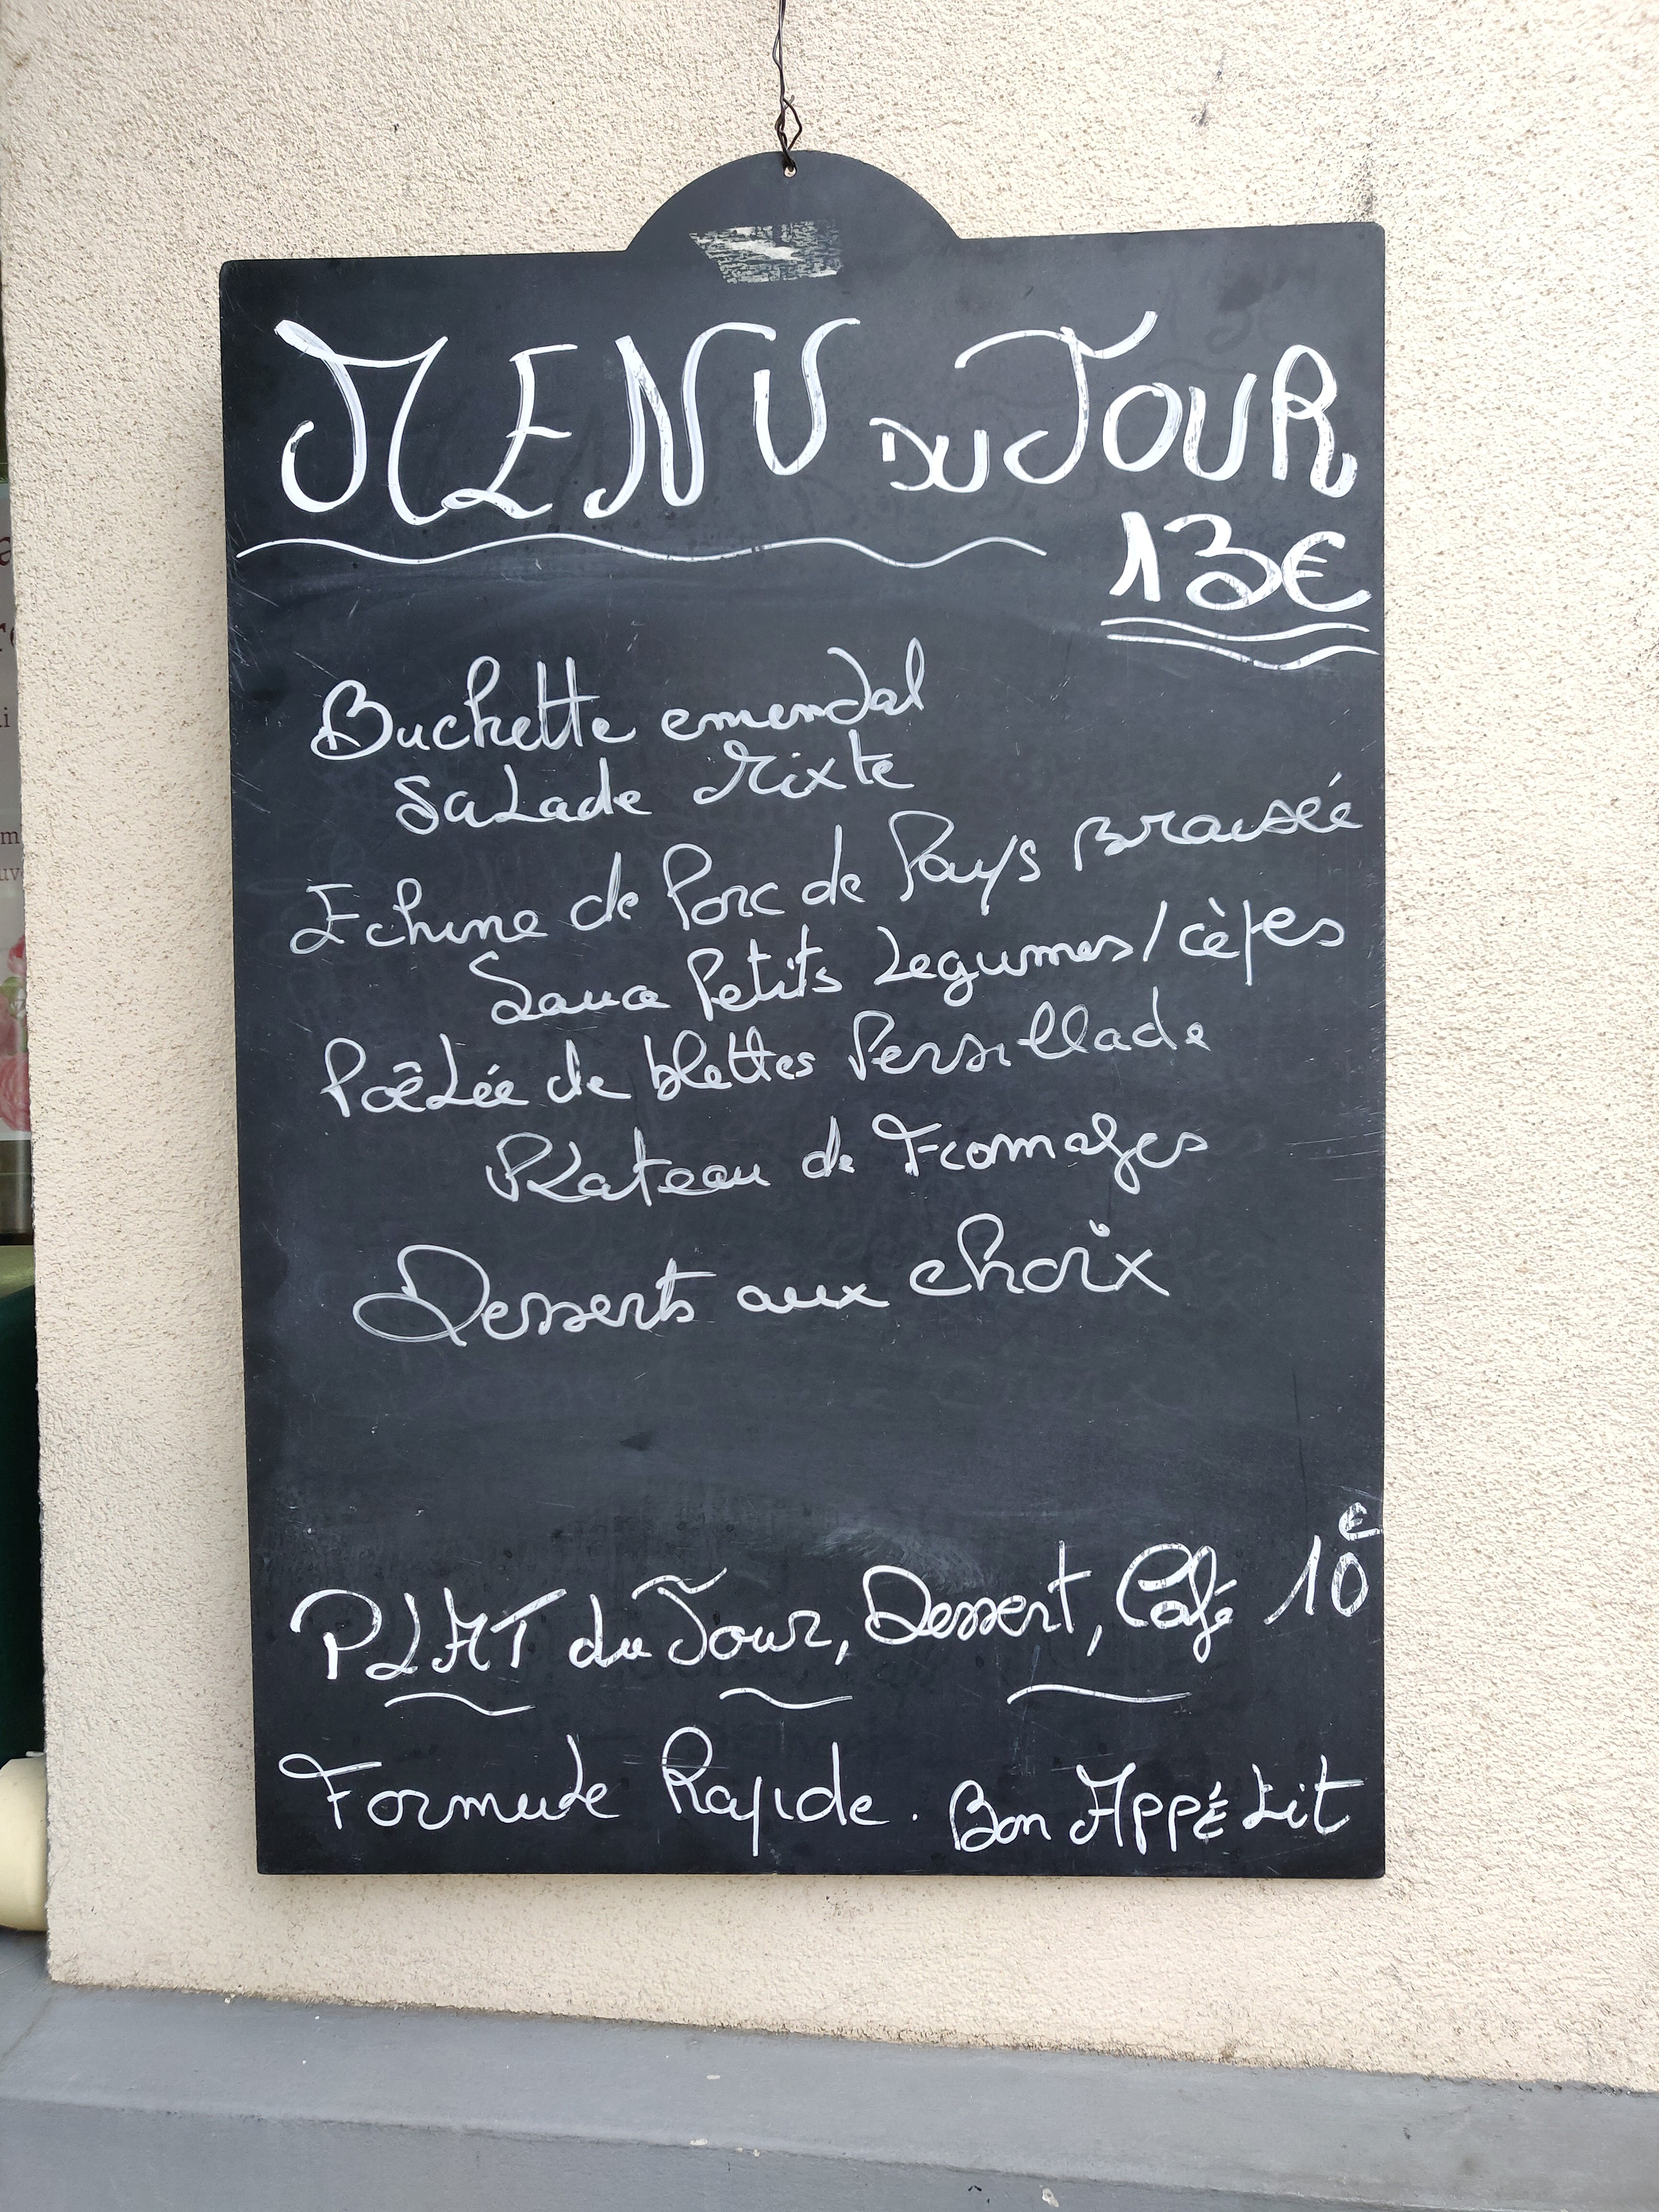 MENU DU JOUR
13€
Buchette emendal
Salade Mixte
Echine de Porc de Pays Braisée
Sauce Petits Legumes / cèpes
Poêlée de blettes Persillade
Plateau de Fromages
Desserts aux choix
PLAT du Jour, Dessert, Café 10€
Formule Rapide. Bon Appétit